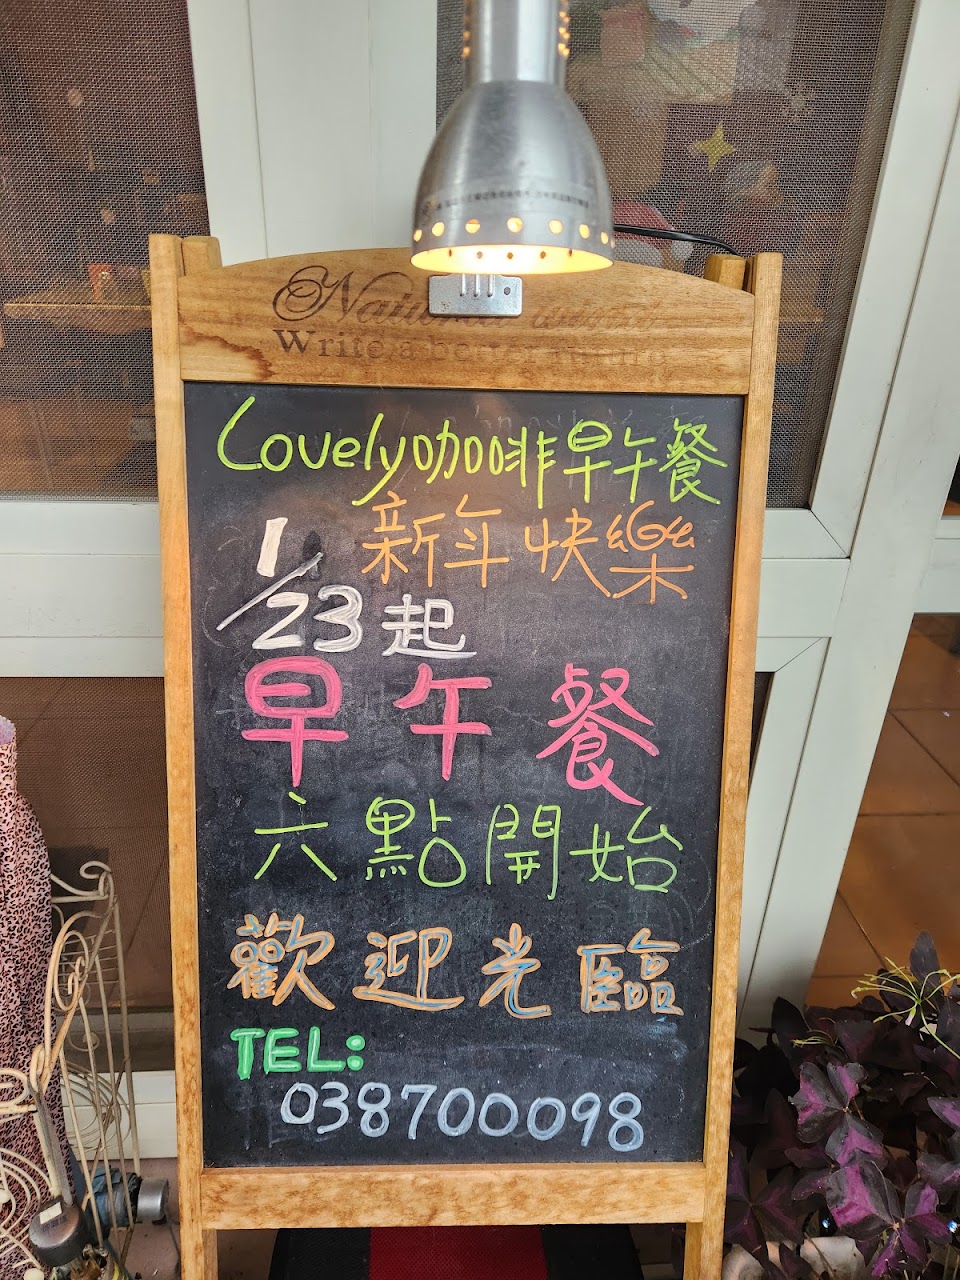 National
Write a better future
Lovely咖啡早午餐
新年快樂
1/23起
早午餐
六點開始
歡迎光臨
TEL:
038700098